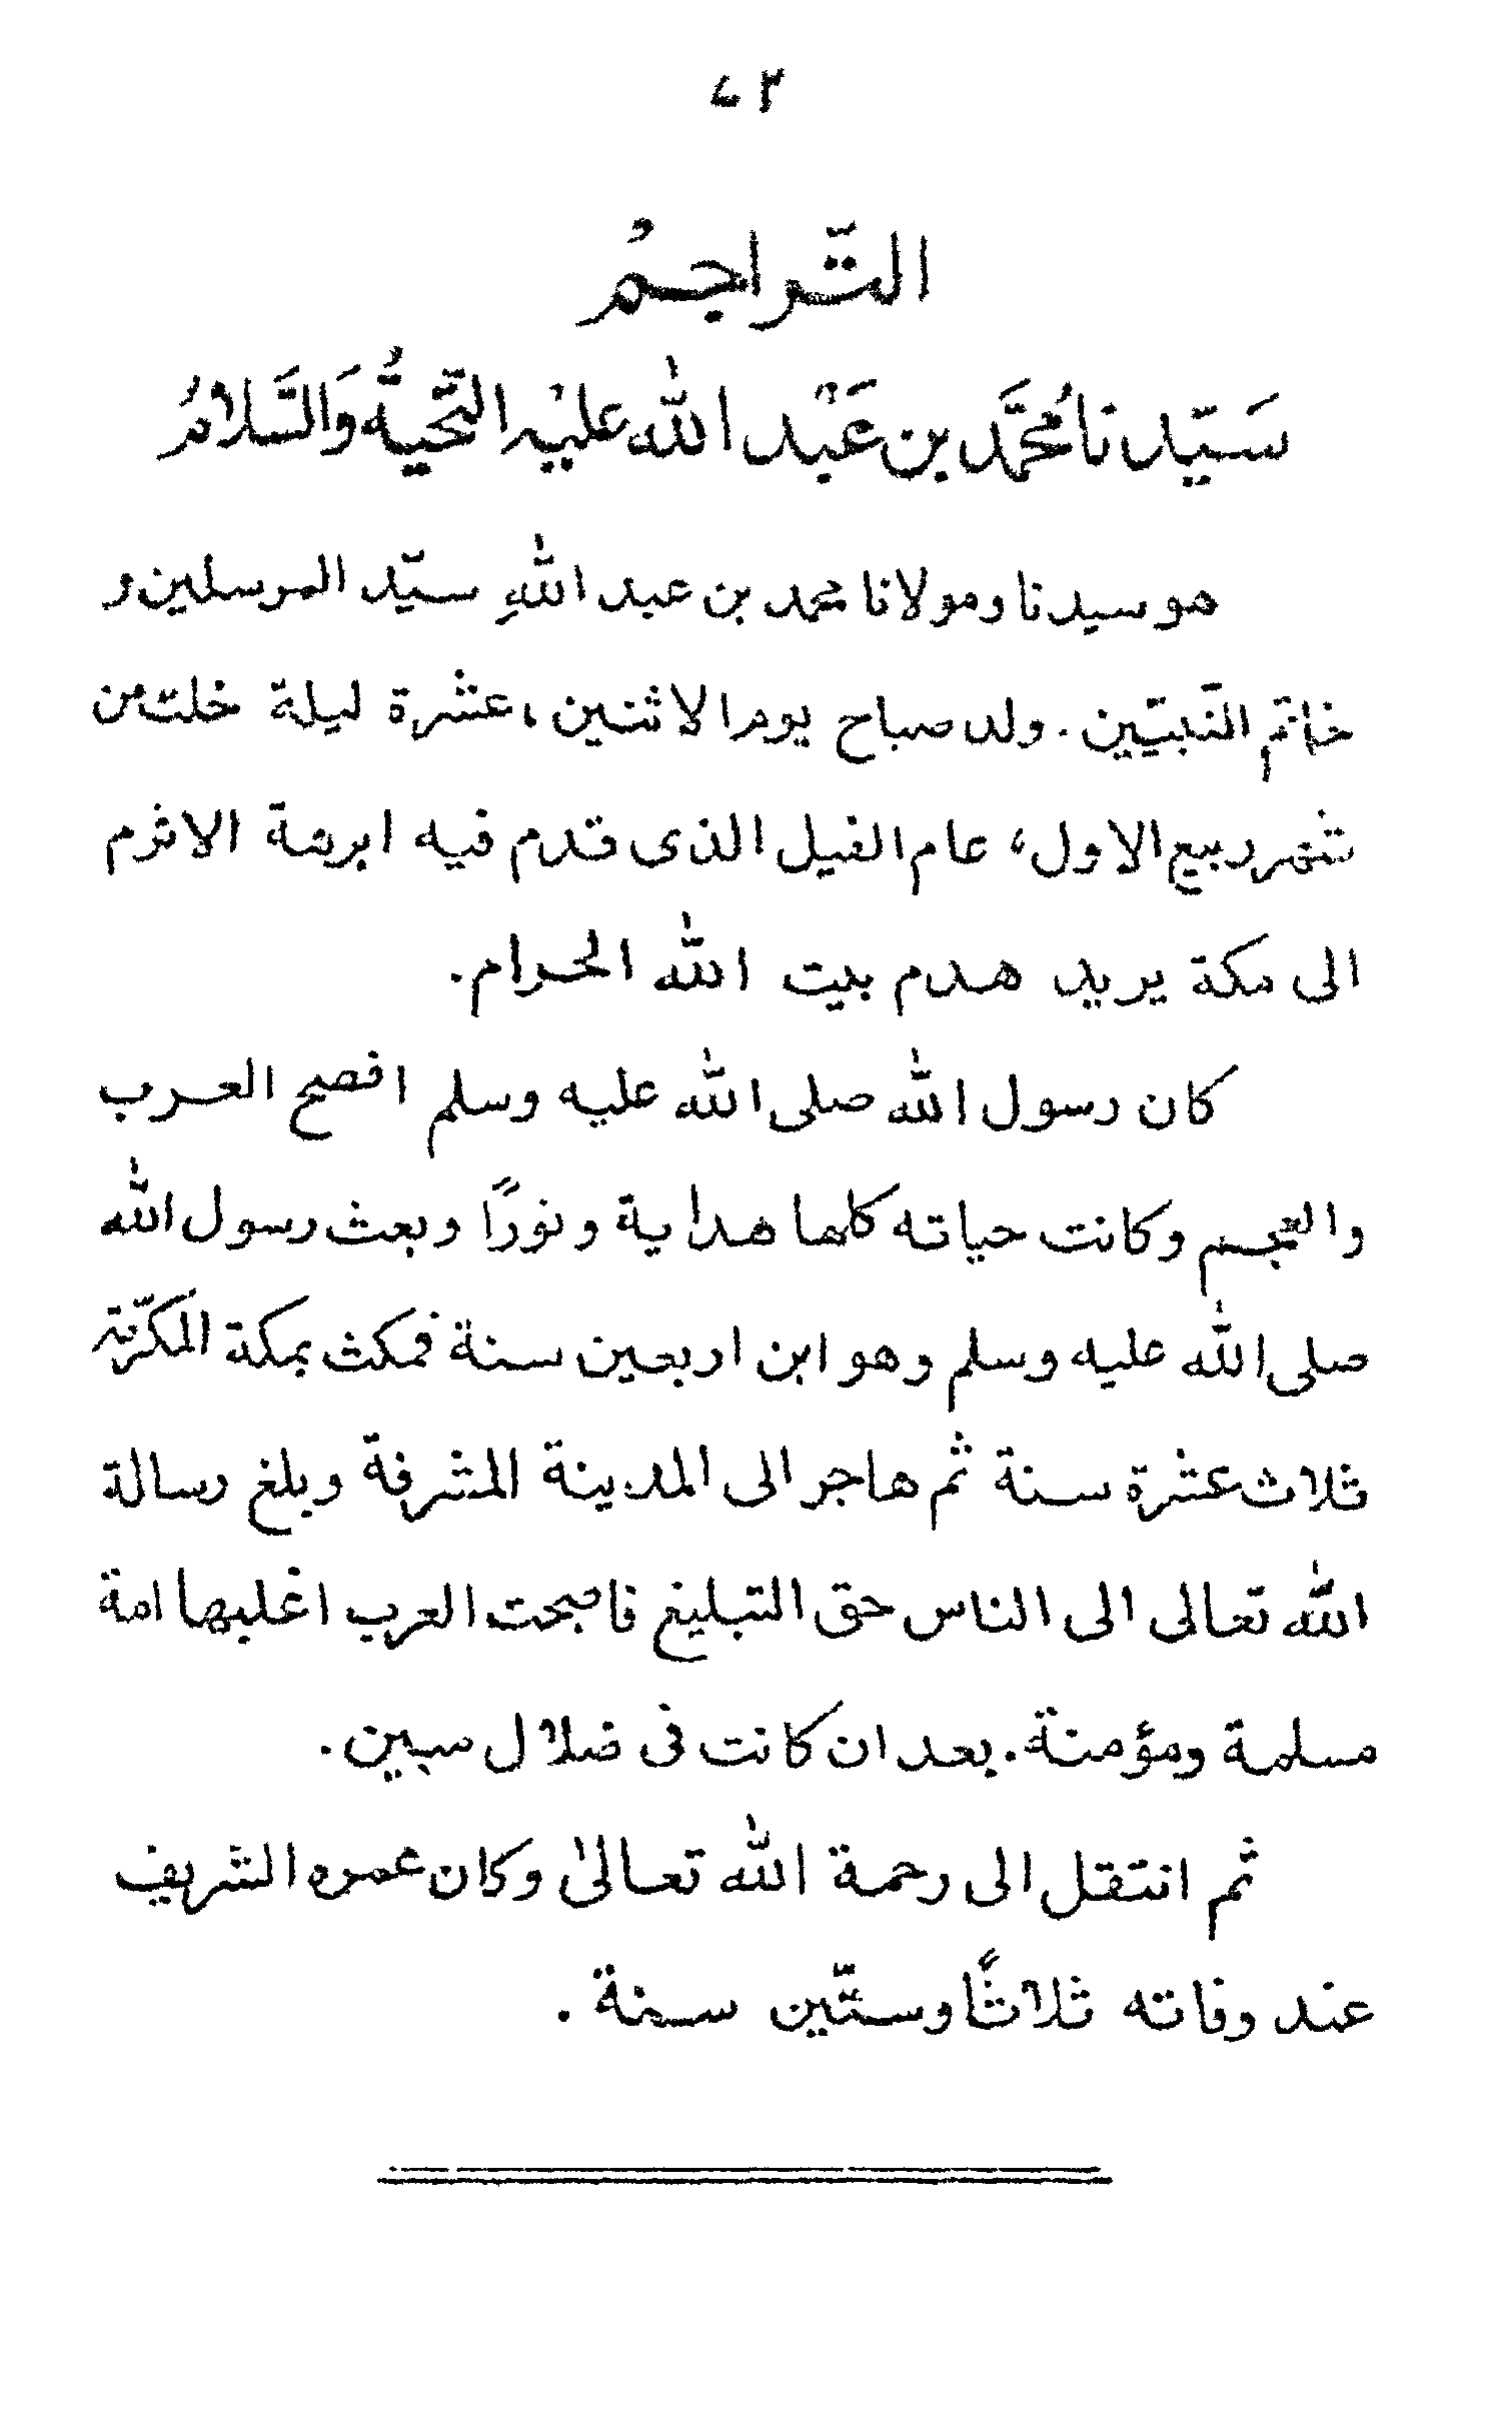 التّراجمُ
سَيّدنا مُحمَّد بن عَبْد الله عليْه التّحيّةُ وَالسَّلامُ
هو سيدنا ومولانا محمد بن عبد اللهِ سيّد المرسلين و
خاتم النّبيّين . ولد صباح يوم الاثنين ، عشرة ليلة خلت من
شهر ربيع الاول ، عام الفيل الذى قدم فيه ابرهة الاثرم
الى مكة يريد هدم بيت الله الحرام .
كان رسول الله صلى الله عليه وسلم افصح العرب
والعجم وكانت حياته كلها هداية ونورًا وبعث رسول الله
صلى الله عليه وسلم وهو ابن اربعين سنة فمكث بمكة المكرّمة
ثلاث عشرة سنة ثم هاجر الى المدينة المشرفة وبلغ رسالة
الله تعالى الى الناس حق التبليغ فاصبحت العرب اغلبها امة
مسلمة ومؤمنة . بعد ان كانت فى ضلال مبين .
ثم انتقل الى رحمة الله تعالىٰ وكان عمره الشريف
عند وفاته ثلاثًا وستّين سنة .